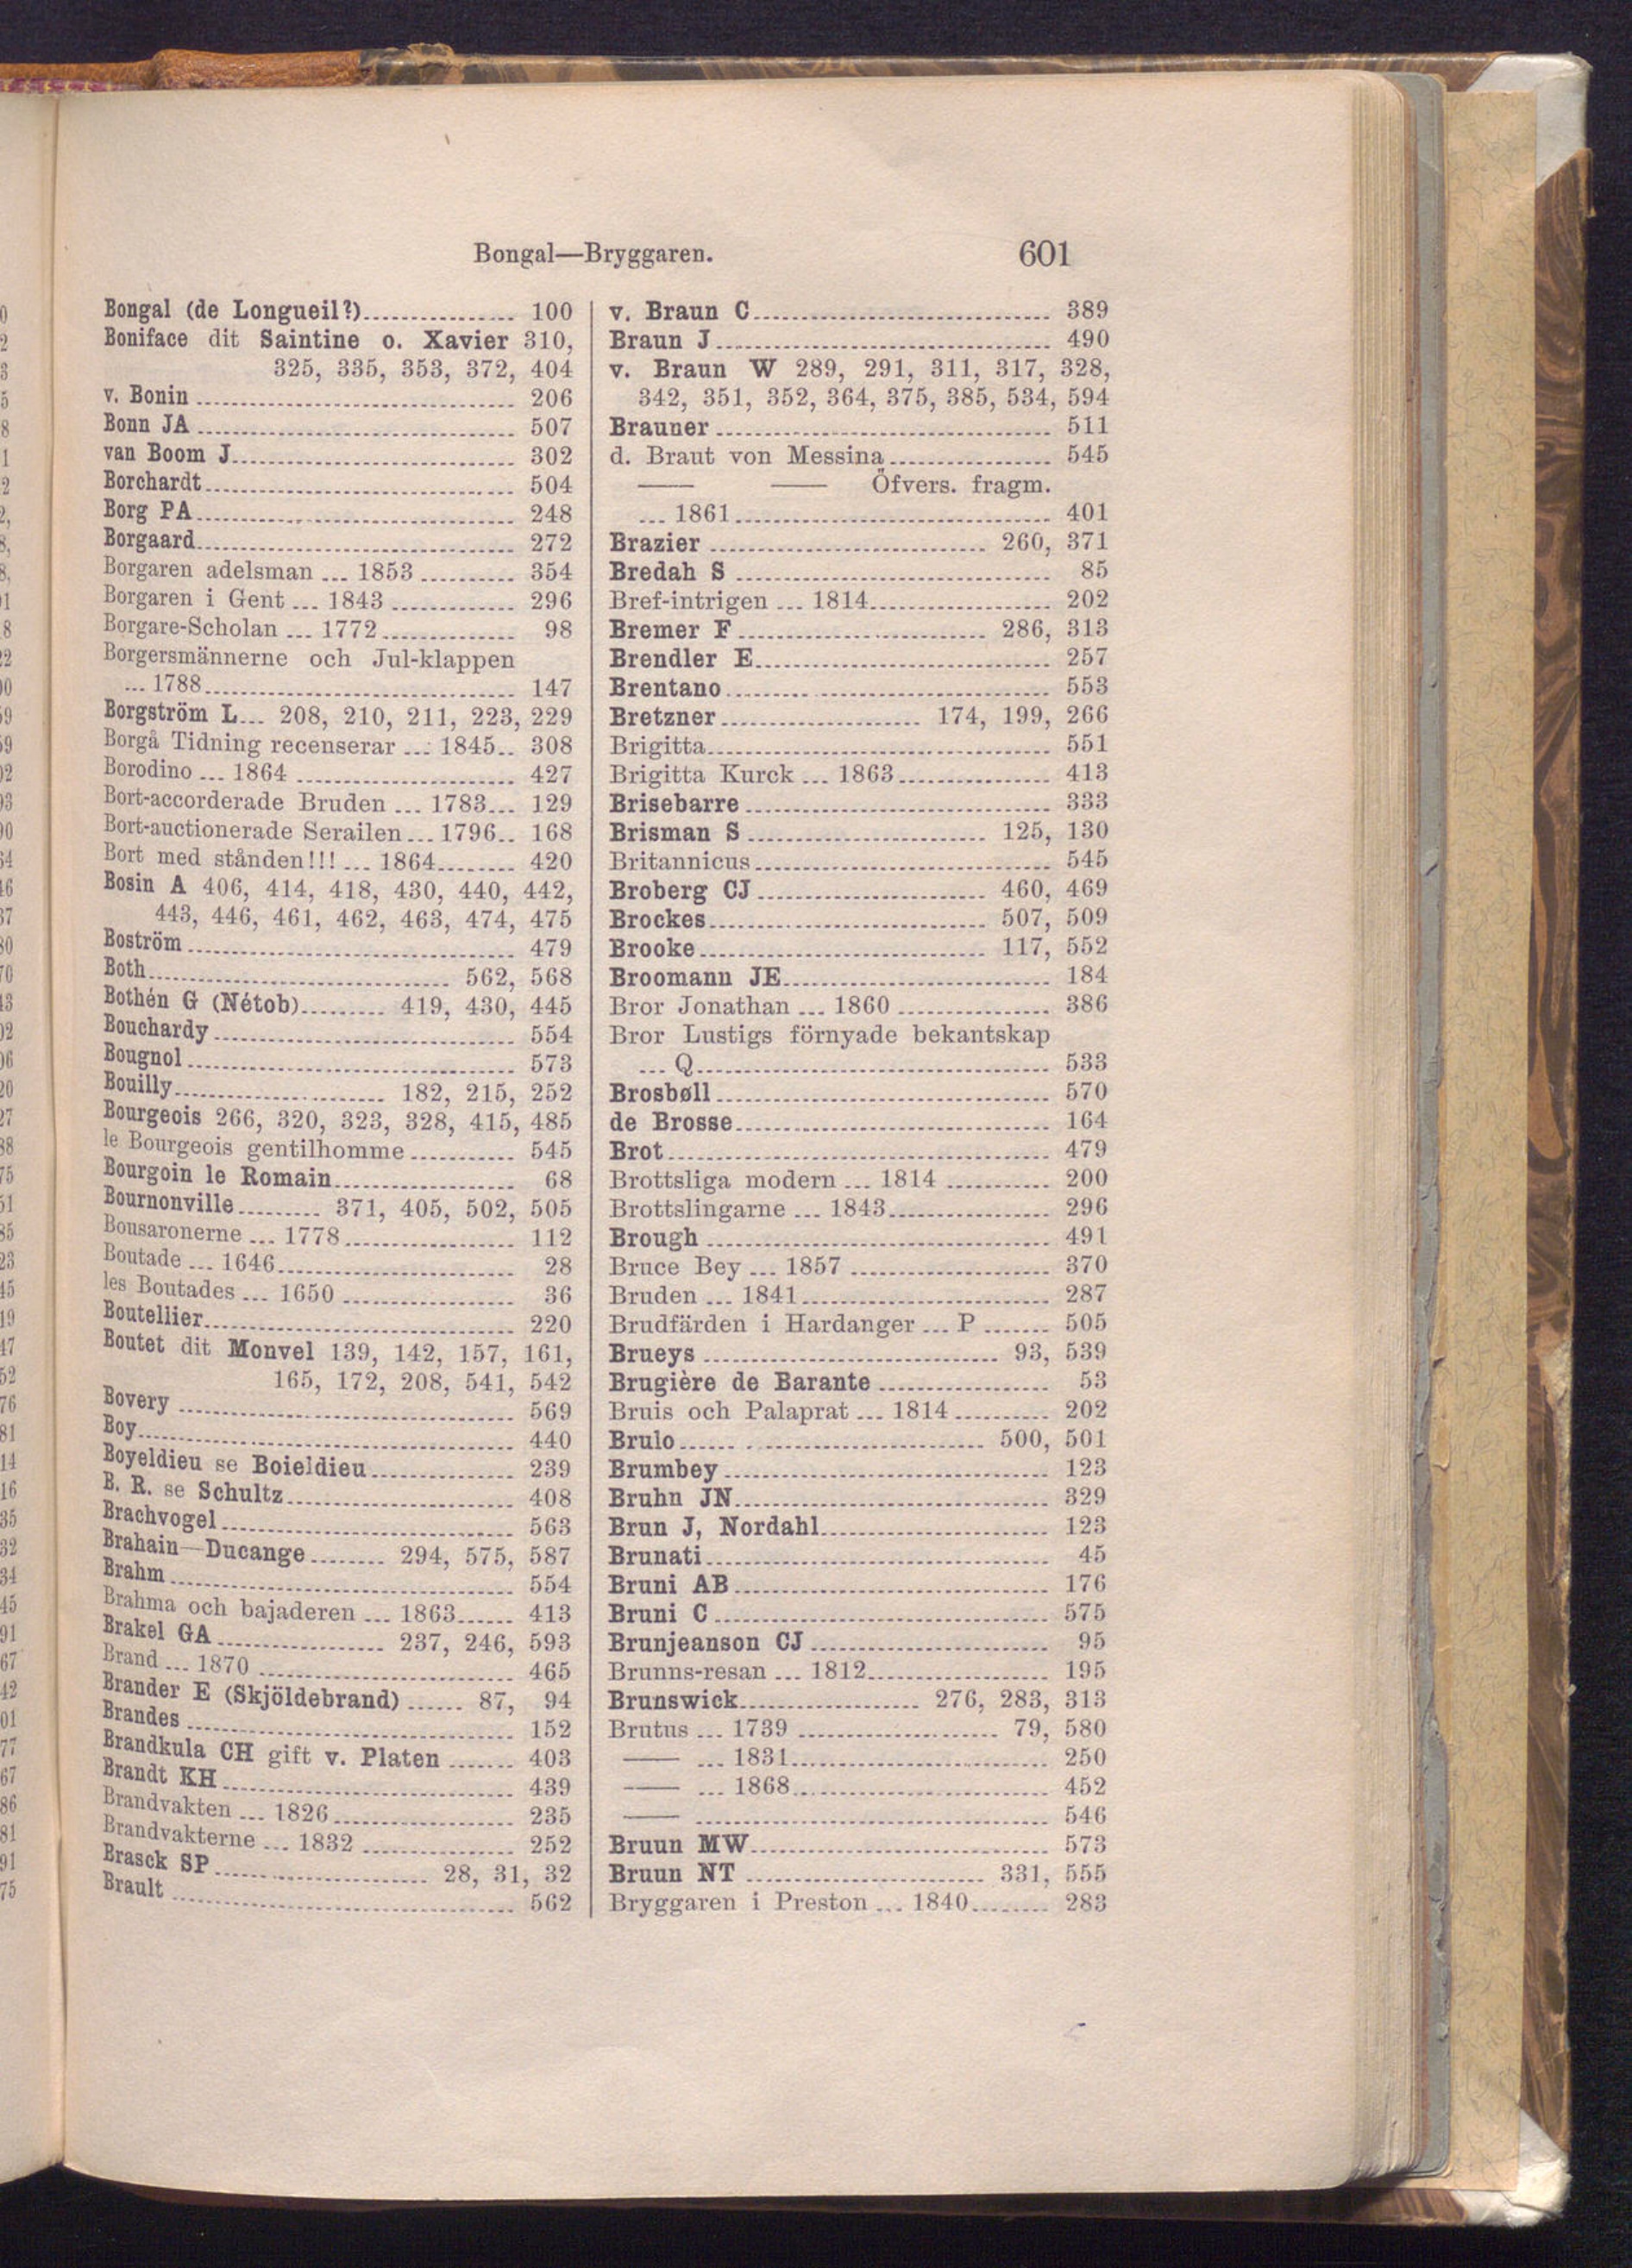 Bongal—Bryggaren.
601
Bongal (de Longueil?) 100
Boniface dit Saintine o. Xavier 310,
325, 335, 353, 372, 404
v. Bonin 206
Bonn JA 507
van Boom J 302
Borchardt 504
Borg PA 248
Borgaard 272
Borgaren adelsman ... 1853 354
Borgaren i Gent ... 1843 296
Borgare-Scholan ... 1772 98
Borgersmännerne och Jul-klappen
... 1788 147
Borgström L... 208, 210, 211, 223, 229
Borgå Tidning recenserar ... 1845 308
Borodino ... 1864 427
Bort-accorderade Bruden ... 1783 129
Bort-auctionerade Serailen ... 1796 168
Bort med stånden!!! ... 1864 420
Bosin A 406, 414, 418, 430, 440, 442,
443, 446, 461, 462, 463, 474, 475
Boström 479
Both 562, 568
Bothén G (Nétob) 419, 430, 445
Bouchardy 554
Bougnol 573
Bouilly 182, 215, 252
Bourgeois 266, 320, 323, 328, 415, 485
le Bourgeois gentilhomme 545
Bourgoin le Romain 68
Bournonville 371, 405, 502, 505
Bousaronerne ... 1778 112
Boutade ... 1646 28
les Boutades ... 1650 36
Boutellier 220
Boutet dit Monvel 139, 142, 157, 161,
165, 172, 208, 541, 542
Bovery 569
Boy 440
Boyeldieu se Boieldieu 239
B. R. se Schultz 408
Brachvogel 563
Brahain—Ducange 294, 575, 587
Brahm 554
Brahma och bajaderen ... 1863 413
Brakel GA 237, 246, 593
Brand ... 1870 465
Brander E (Skjöldebrand) 87, 94
Brandes 152
Brandkula CH gift v. Platen 403
Brandt KH 439
Brandvakten ... 1826 235
Brandvakterne ... 1832 252
Brasck SP 28, 31, 32
Brault 562
v. Braun C 389
Braun J 490
v. Braun W 289, 291, 311, 317, 328,
342, 351, 352, 364, 375, 385, 534, 594
Brauner 511
d. Braut von Messina 545
—— —— Öfvers. fragm.
... 1861 401
Brazier 260, 371
Bredah S 85
Bref-intrigen ... 1814 202
Bremer F 286, 313
Brendler E 257
Brentano 553
Bretzner 174, 199, 266
Brigitta 551
Brigitta Kurck ... 1863 413
Brisebarre 333
Brisman S 125, 130
Britannicus 545
Broberg CJ 460, 469
Brockes 507, 509
Brooke 117, 552
Broomann JE 184
Bror Jonathan ... 1860 386
Bror Lustigs förnyade bekantskap
... Q 533
Brosbøll 570
de Brosse 164
Brot 479
Brottsliga modern ... 1814 200
Brottslingarne ... 1843 296
Brough 491
Bruce Bey ... 1857 370
Bruden ... 1841 287
Brudfärden i Hardanger ... P 505
Brueys 93, 539
Brugière de Barante 53
Bruis och Palaprat ... 1814 202
Brulo 500, 501
Brumbey 123
Bruhn JN 329
Brun J, Nordahl 123
Brunati 45
Bruni AB 176
Bruni C 575
Brunjeanson CJ 95
Brunns-resan ... 1812 195
Brunswick 276, 283, 313
Brutus ... 1739 79, 580
—— ... 1831 250
—— ... 1868 452
—— 546
Bruun MW 573
Bruun NT 331, 555
Bryggaren i Preston ... 1840 283